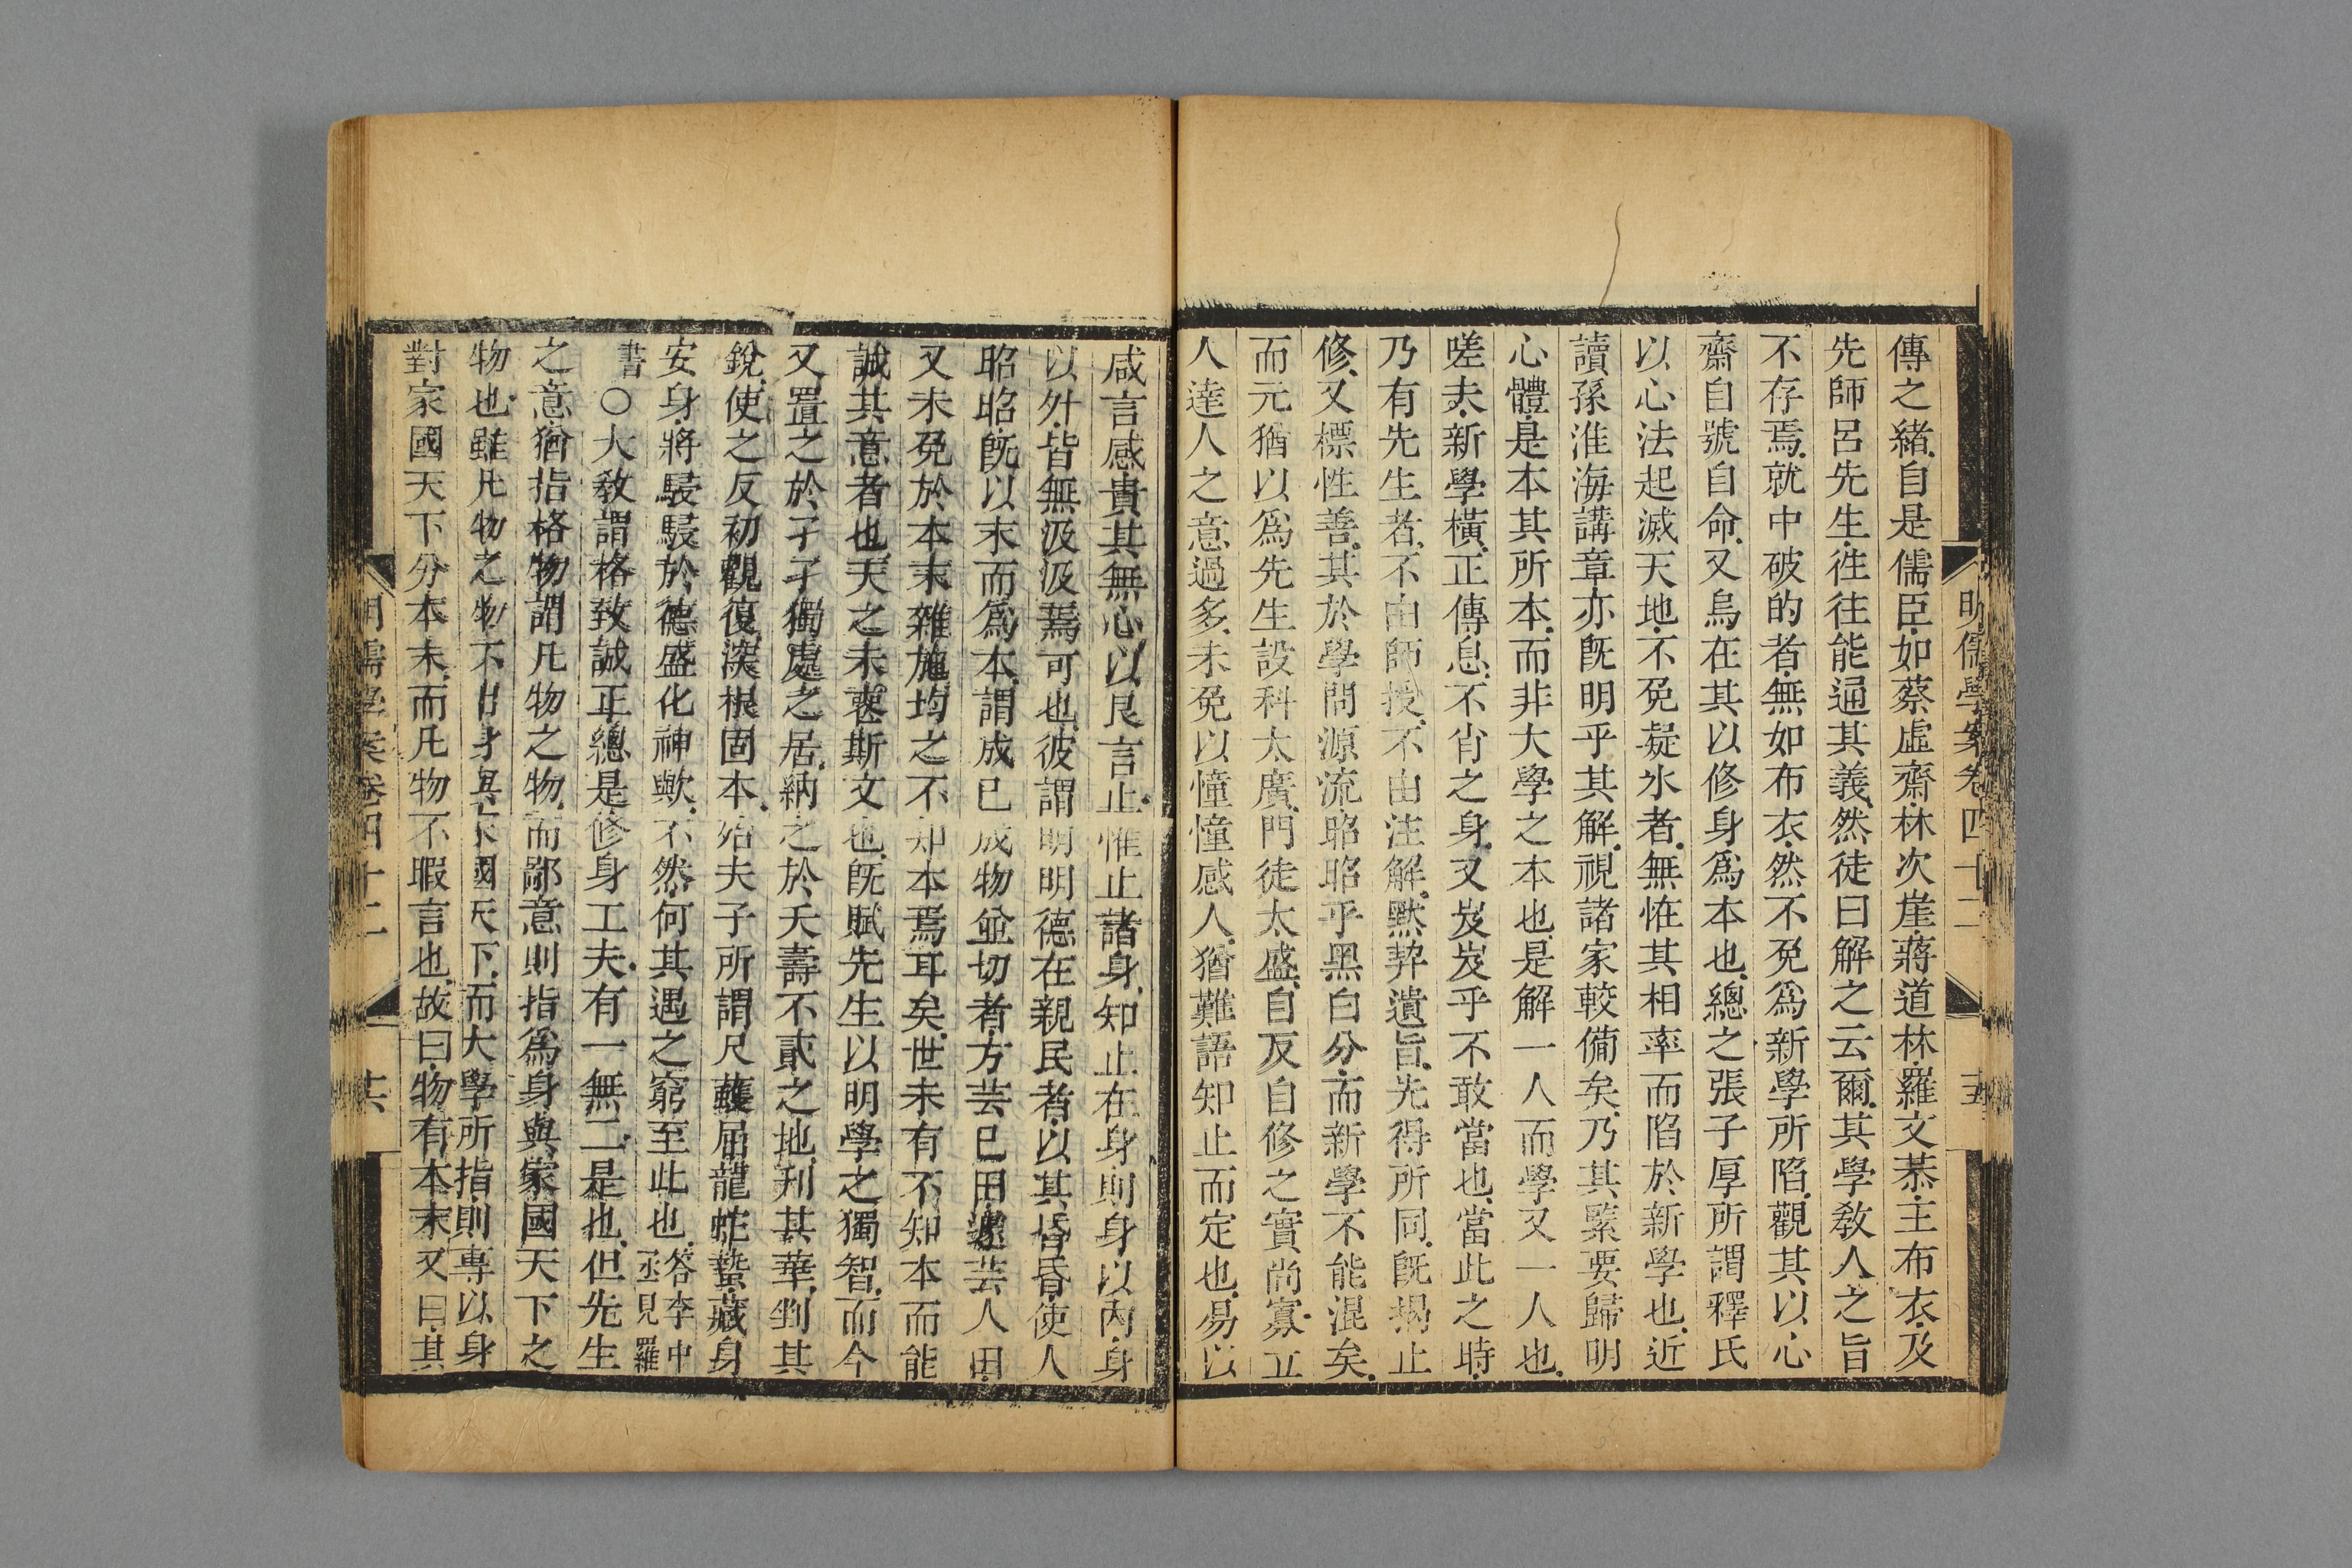 明儒學案卷四十二
五
傳之緒自是儒臣如蔡虛齋林次崖蔣道林羅文恭王布衣及
先師呂先生徃往能通其義然徒曰解之云爾其學敎人之旨
不存焉就中破的者無如布衣然不免爲新學所陷觀其以心
齋自號自命又烏在其以修身爲本也總之張子厚所謂釋氏
以心法起滅天地不免疑氷者無恠其相率而陷於新學也近
讀孫淮海講章亦旣明乎其解視諸家較備矣乃其緊要歸明
心體是本其所本而非大學之本也是解一人而學又一人也
嗟夫新學橫正傳息不肖之身又岌岌乎不敢當也當此之時
乃有先生者不由師授不由注解默契遺旨先得所同旣揭止
修又標性善其於學問源流昭昭乎黑白分而新學不能混矣
而元猶以爲先生設科太廣門徒太盛自反自修之實尚寡立
人達人之意過多未免以憧憧感人猶難語知止而定也易以
咸言感貴其無心以艮言止惟止諸身知止在身則身以內身
以外皆無汲汲焉可也彼謂明明德在親民者以其昏昏使人
昭昭旣以末而爲本謂成已成物並切者方芸已田遽芸人田
又未免於本末雜施均之不知本焉耳矣世未有不知本而能
誠其意者也天之未喪斯文也旣賦先生以明學之獨智而今
又置之於孑孑獨處之居納之於夭壽不貳之地刋其華剉其
銳使之反初觀復深根固本殆夫子所謂尺蠖屈龍蛇蟄藏身
安身將駸駸於德盛化神歟不然何其遇之窮至此也答李中丞見羅
書○大敎謂格致誠正總是修身工夫有一無二是也但先生
之意猶指格物謂凡物之物而鄙意則指爲身與家國天下之
物也雖凡物之物不出身與家國天下而大學所指則專以身
對家國天下分本末而凡物不暇言也故曰物有本末又曰其
明儒學案卷四十二
共